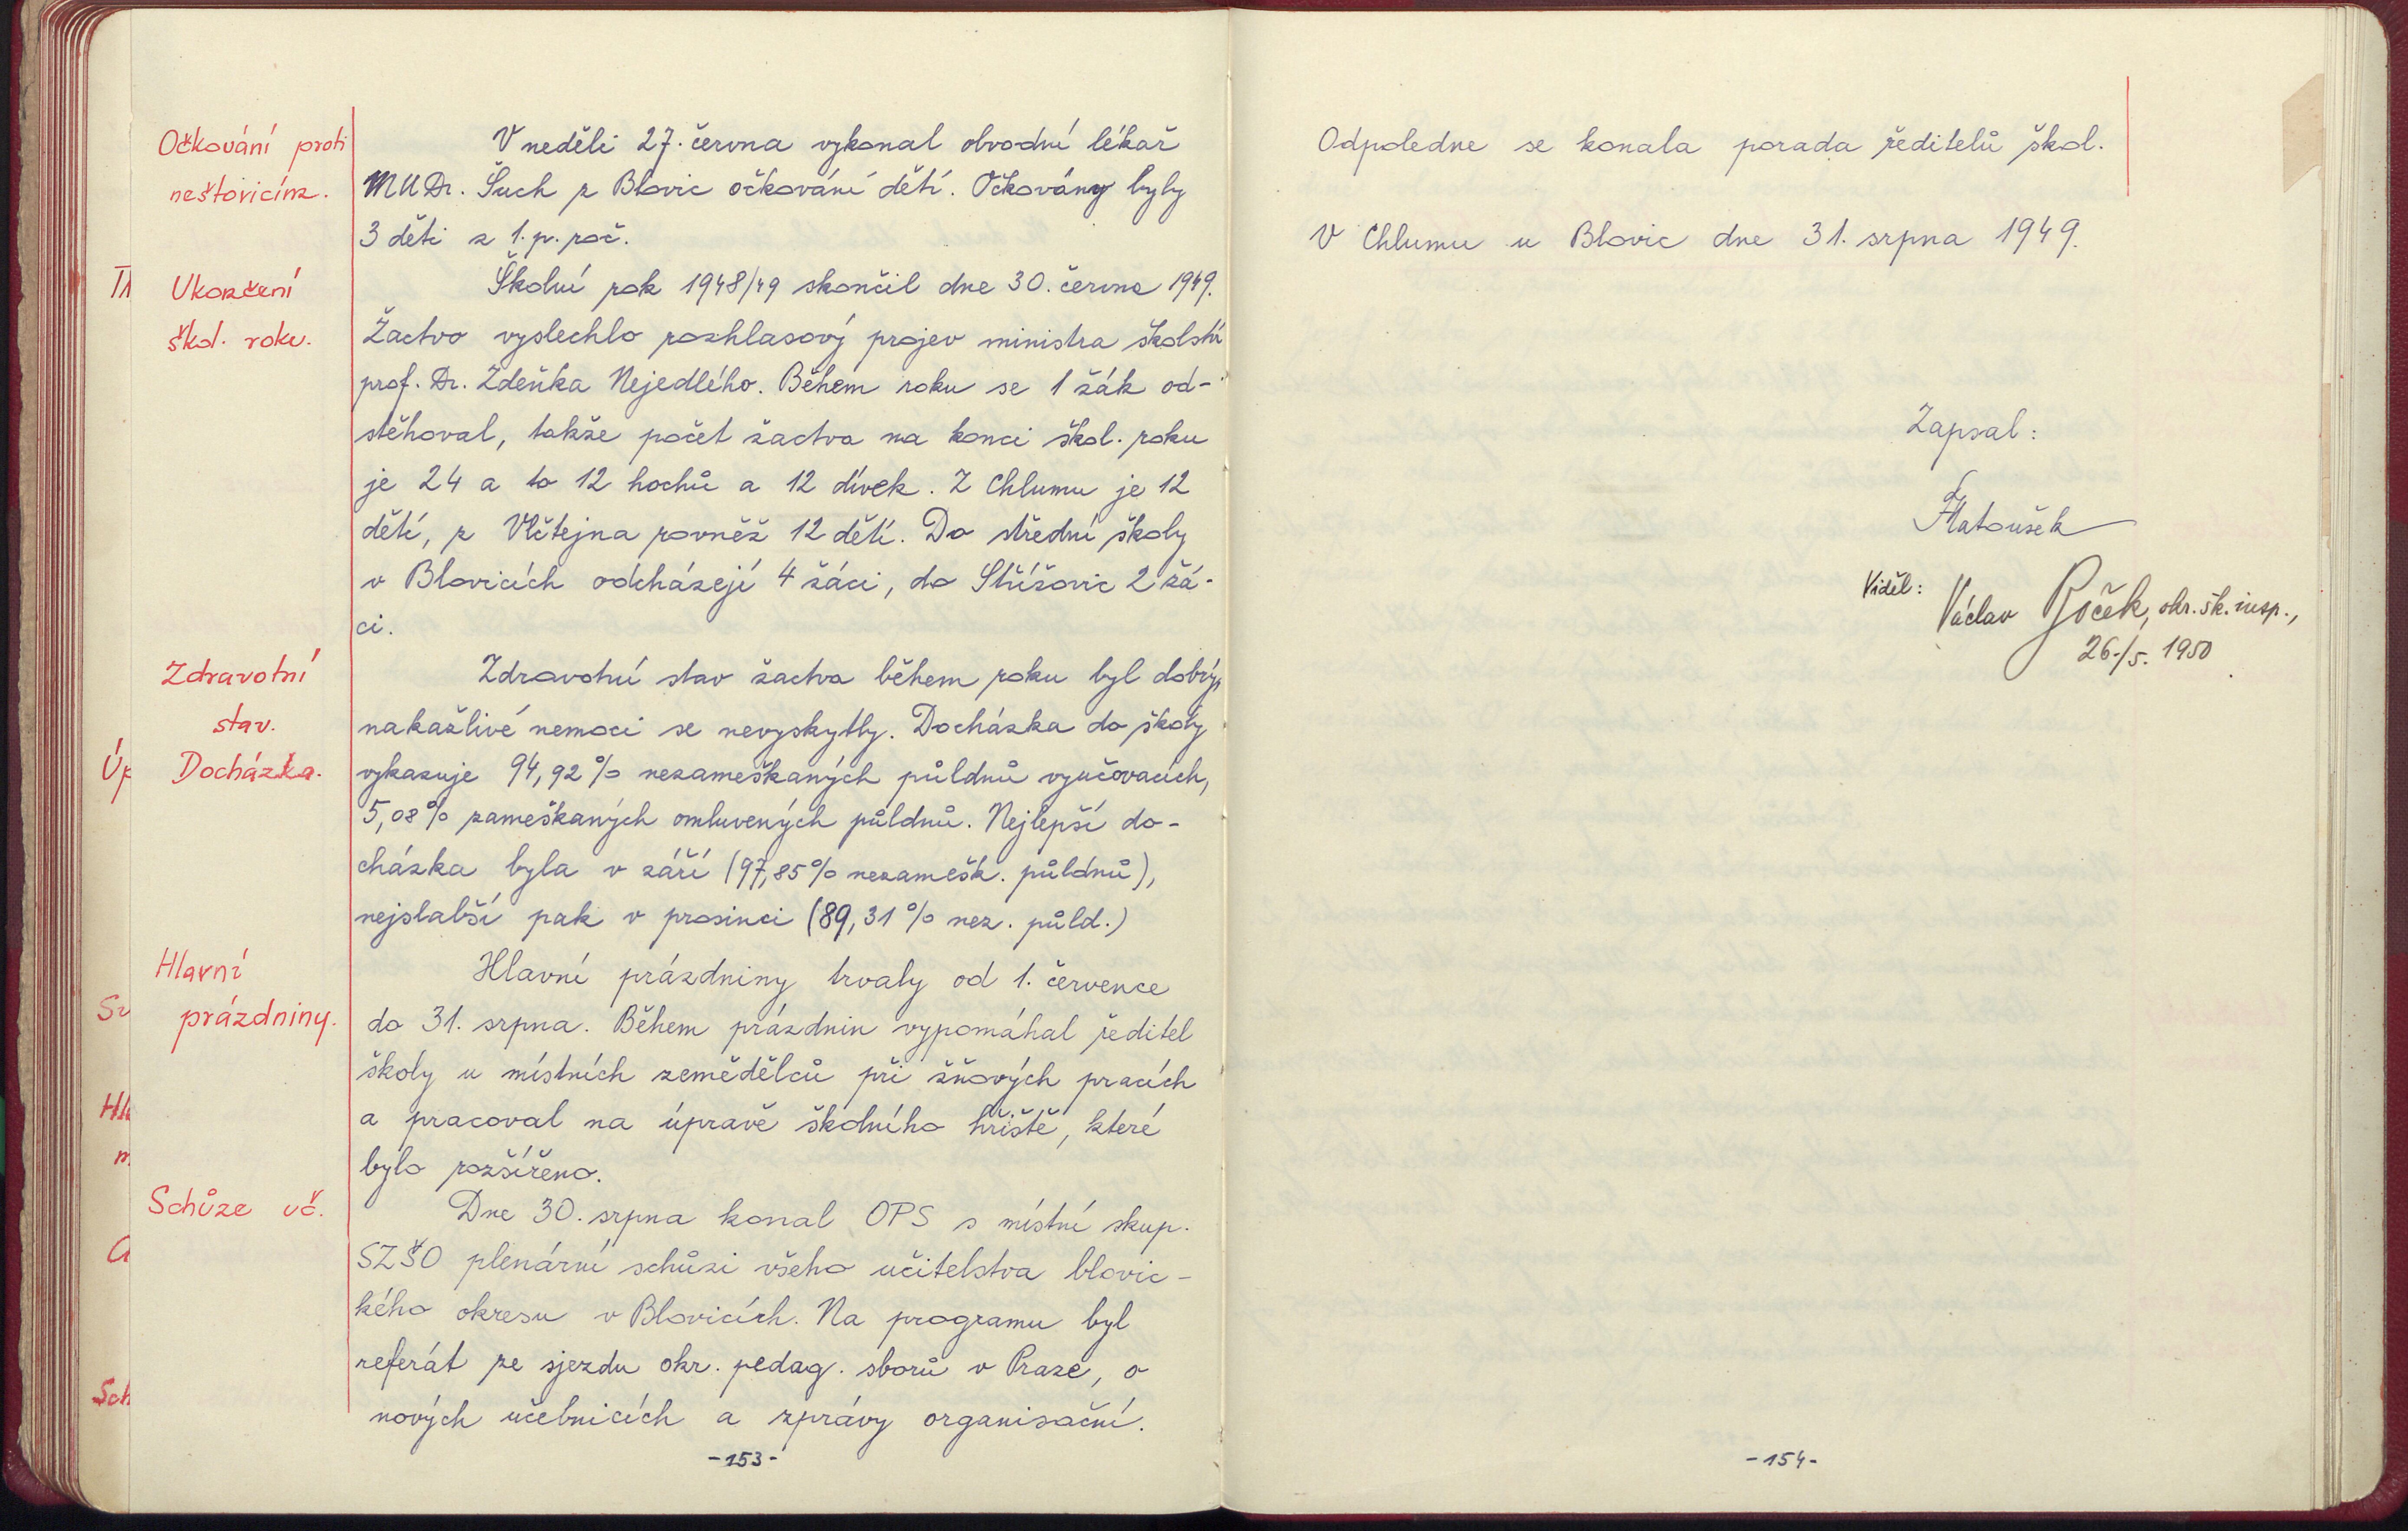 Očkování proti
neštovicím.
V neděli 27. června vykonal obvodní lékař
MUDr. Šuch z Blovic očkování dětí. Očkovány byly
3 děti z 1. p. roč.
Ukončení
škol. roku.
Školní rok 1948/49 skončil dne 30. června 1949.
Žactvo vyslechlo rozhlasový projev ministra školství
prof. Dr. Zdeňka Nejedlého. Během roku se 1 žák od-
stěhoval, takže počet žactva na konci škol. roku
je 24 a to 12 hochů a 12 dívek. Z Chlumu je 12
dětí, z Vlčtejna rovněž 12 dětí. Do střední školy
v Blovicích odcházejí 4 žáci, do Střížovic 2 žá-
ci.
Zdravotní
stav.
Docházka.
Zdravotní stav žactva během roku byl dobrý,
nakažlivé nemoci se nevyskytly. Docházka do školy
vykazuje 94,92 % nezameškaných půldnů vyučovacích,
5,08 % zameškaných omluvených půldnů. Nejlepší do-
cházka byla v září (97,85 % nezamešk. půldnů),
nejslabší pak v prosinci (89,31 % nez. půld.)
Hlavní
prázdniny.
Hlavní prázdniny trvaly od 1. července
do 31. srpna. Během prázdnin vypomáhal ředitel
školy u místních zemědělců při žňových pracích
a pracoval na úpravě školního hřiště, které
bylo rozšířeno.
Schůze uč.
Dne 30. srpna konal OPS s místní skup.
SZŠO plenární schůzi všeho učitelstva blovic-
kého okresu v Blovicích. Na programu byl
referát ze sjezdu okr. pedag. sborů v Praze, o
nových učebnicích a zprávy organisační.
-153-
Odpoledne se konala porada ředitelů škol.
V Chlumu u Blovic dne 31. srpna 1949.
Zapsal:
Matoušek
Viděl:
Václav
okr. šk. insp.,
26./5. 1950
-154-